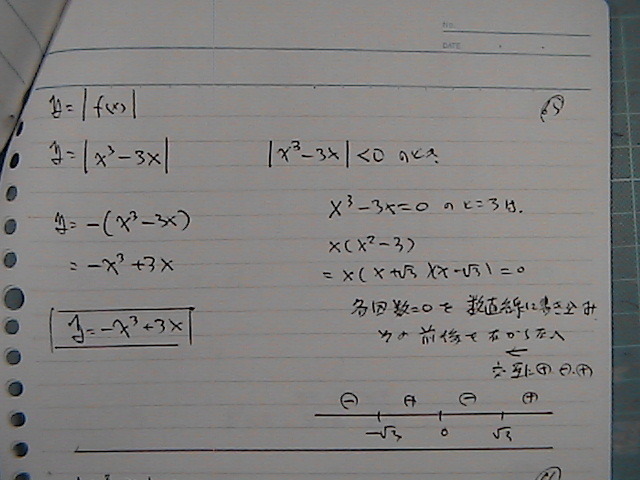 NO.
DATE
y = |f(x)|
y = |x³-3x|
|x³-3x| <0 のとき
y = -(x³-3x)
= -x³+3x
y = -x³+3x
x³-3x=0 のところは.
x(x²-3)
= x(x+√3)(x-√3) = 0
各因数=0を 数直線に書き込み
その前後を右から左へ
←
交互に ⊕ ⊖ ⊕
⊖ ⊕ ⊖ ⊕
-√3 0 √3